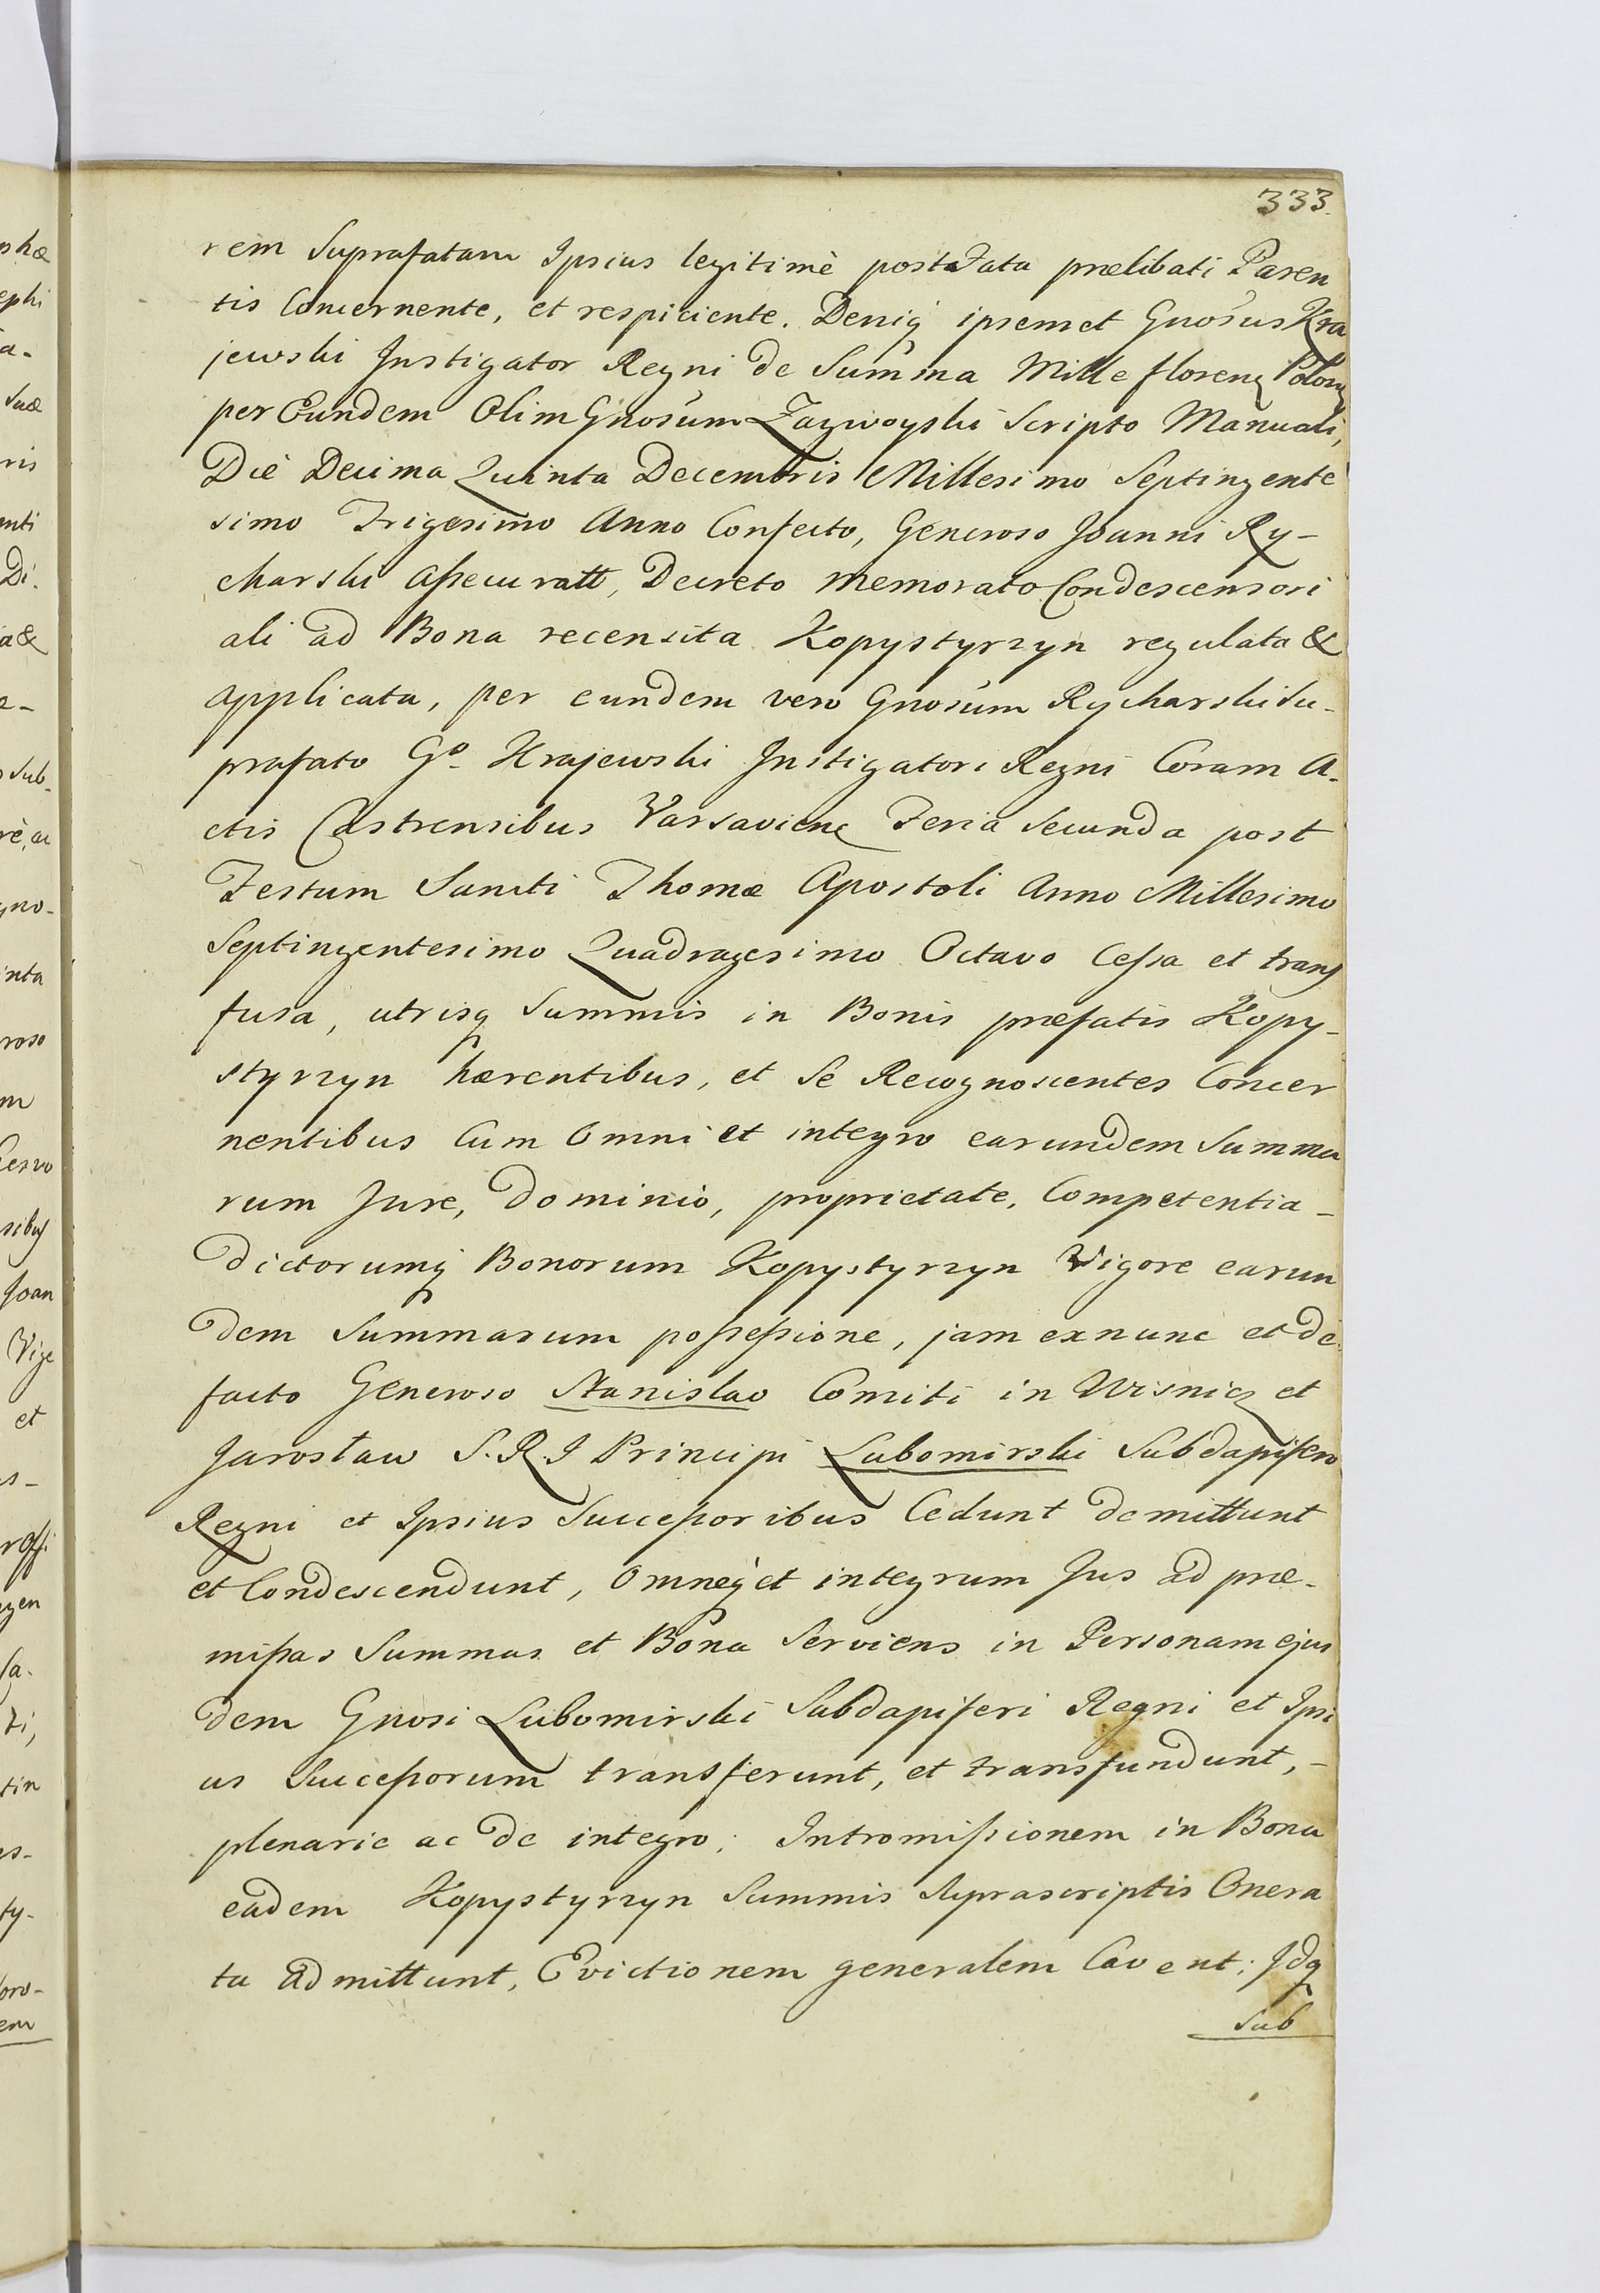 333.
rem Suprafatam Ipsius legitimè post Fata prælibati Paren
tis Concernente, et respiciente. Deniq ipsemet Gnosus Kra
jewski Instigator Regni de Summa Mille floren Polon
per Eundem Olim Gnosum Zazwoyski Scripto Manuali,
Diè Decima Quinta Decembris Millesimo Septingente
simo Trigesimo Anno Confecto, Generoso Joanni Ry-
charski assecuratt, Decreto memorato Condescensori
ali ad Bona recensita Kopystyrzyn regulata &
applicata, per eundem vero Gnosum Rycharski Su-
prafato Go Krajewski Instigatori Regni Coram A-
ctis Castrensibus Varsavien Feria Secunda post
Festum Sancti Thomæ Apostoli Anno Millesimo
Septingentesimo Quadragesimo Octavo Cessa et trans
fusa, utrisq Summis in Bonis præfatis Kopy-
styrzyn hærentibus, et Se Recognoscentes Concer
nentibus Cum Omni et integro earundem Summa
rum Jure, Dominio, proprietate, Competentia -
Dictorumq Bonorum Kopystyrzyn Vigore earun
dem Summarum possessione, jam exnunc et de
facto Generoso Stanislao Comiti in Wisnicz et
Jarosław S. R. I Principi Lubomirski Subdapifero
Regni et Ipsius Successoribus Cedunt demittunt
et Condescendunt, Omneq et integrum Jus ad præ-
missas Summas et Bona Serviens in Personam ejus
dem Gnosi Lubomirski Subdapiferi Regni et Ipsi
us Successorum transferunt, et transfundunt, -
plenarie ac de integro; Intromissionem in Bona
eadem Kopystyrzyn Summis Suprascriptis Onera
ta admittunt, Evictionem generalem Cavent; Idq
Sub